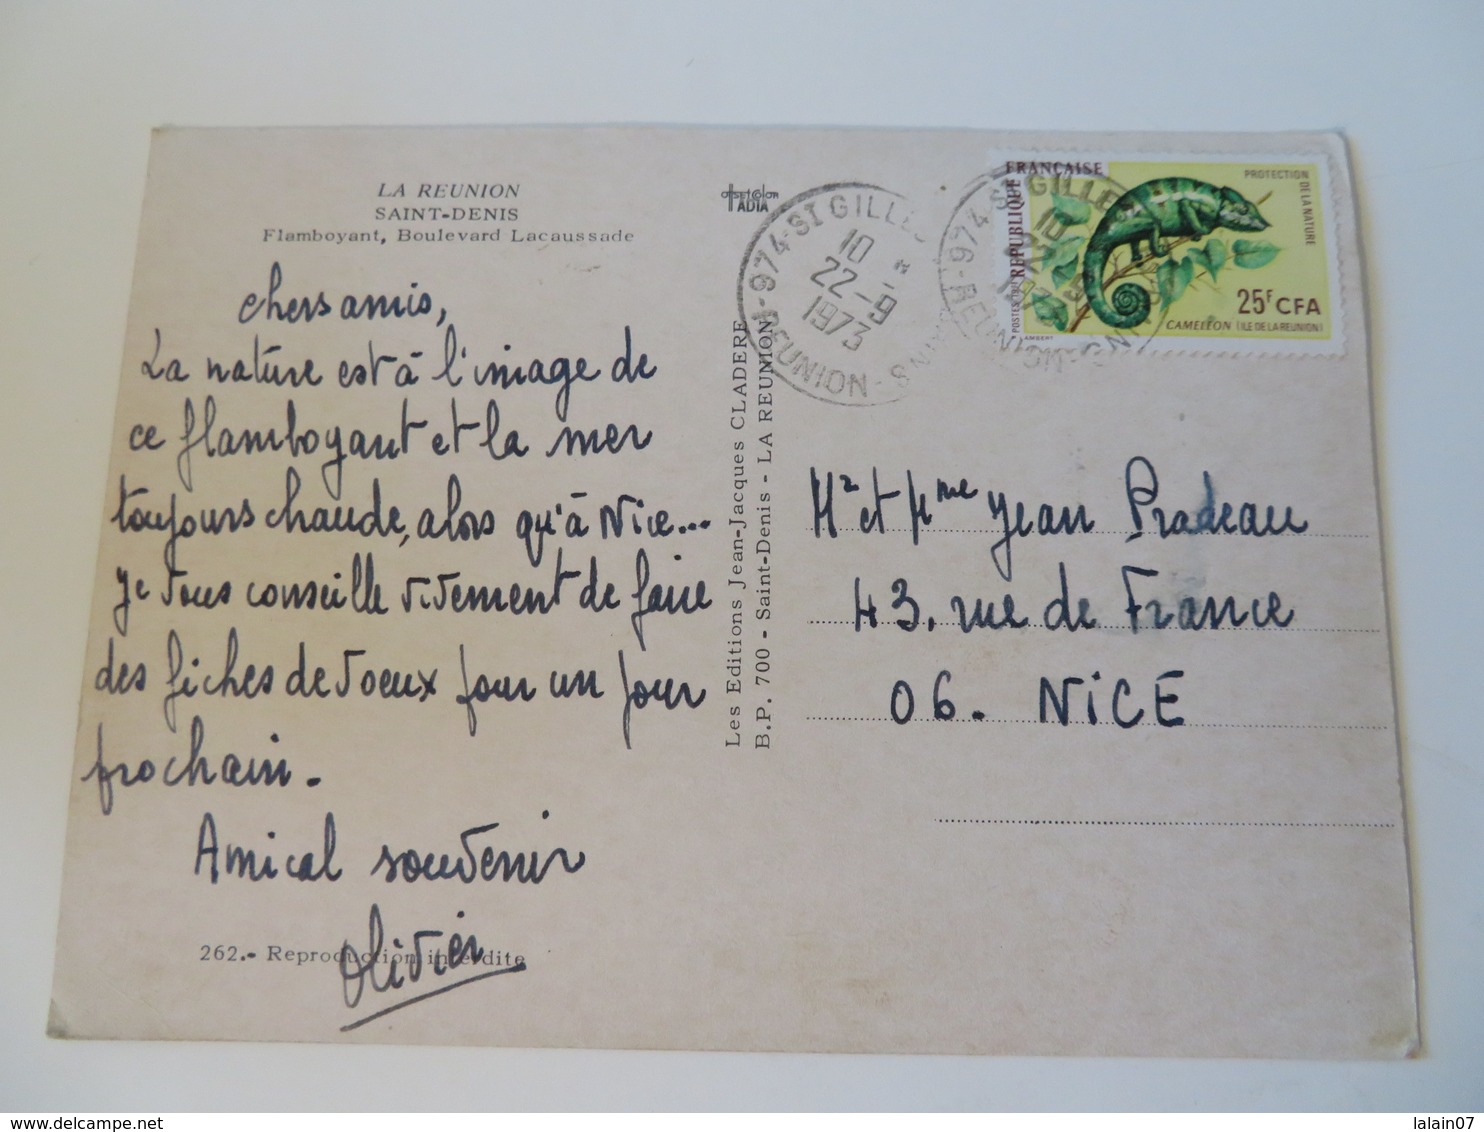 LA REUNION
SAINT-DENIS
Flamboyant, Boulevard Lacaussade
chers amis,
La nature est à l'image de
ce flamboyant et la mer
toujours chaude, alors qu'à Nice...
Je vous conseille vivement de faire
des fiches de voeux pour un jour
prochain.
Amical souvenir
Olivier
262.- Reproduction interdite
offset color
IADIA
Les Editions Jean-Jacques CLADERE
B.P. 700 - Saint-Denis - LA REUNION
974-ST GILLES
10
22-9
1973
REUNION
974-ST GILLES
REUNION
REPUBLIQUE FRANÇAISE
PROTECTION DE LA NATURE
25F CFA
CAMELEON (ILE DE LA REUNION)
POSTES
LAMBERT
Mr et Mme Jean Pradeau
43. rue de France
06. NiCE
delcampe.net
lalain07